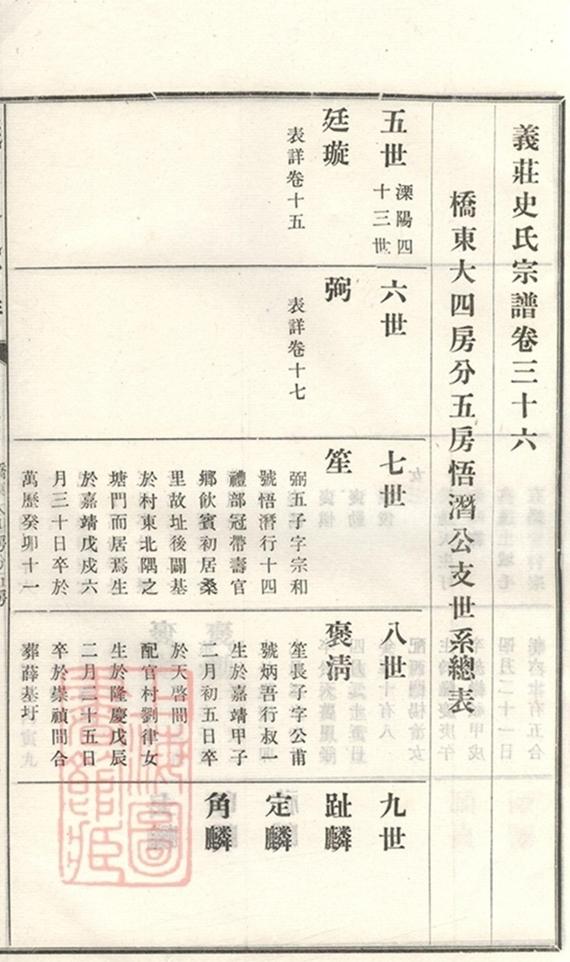 義莊史氏宗譜卷三十六
橋東大四房分五房悟潛公支世系總表
五世
溧陽四
十三世
廷璇
表詳卷十五
六世
弼
表詳卷十七
七世
笙
弼五子字宗和
號悟潛行十四
禮部冠帶壽官
鄉飲賓初居桑
里故址後闢基
於村東北隅之
塘門而居焉生
於嘉靖戊戌六
月三十日卒於
萬歷癸卯十一
八世
褒淸
笙長子字公甫
號炳吾行叔一
生於嘉靖甲子
二月初五日卒
於天啓間
配官村劉律女
生於隆慶戊辰
二月二十五日
卒於崇禎間合
葬薛基圩
九世
趾麟
定麟
角麟